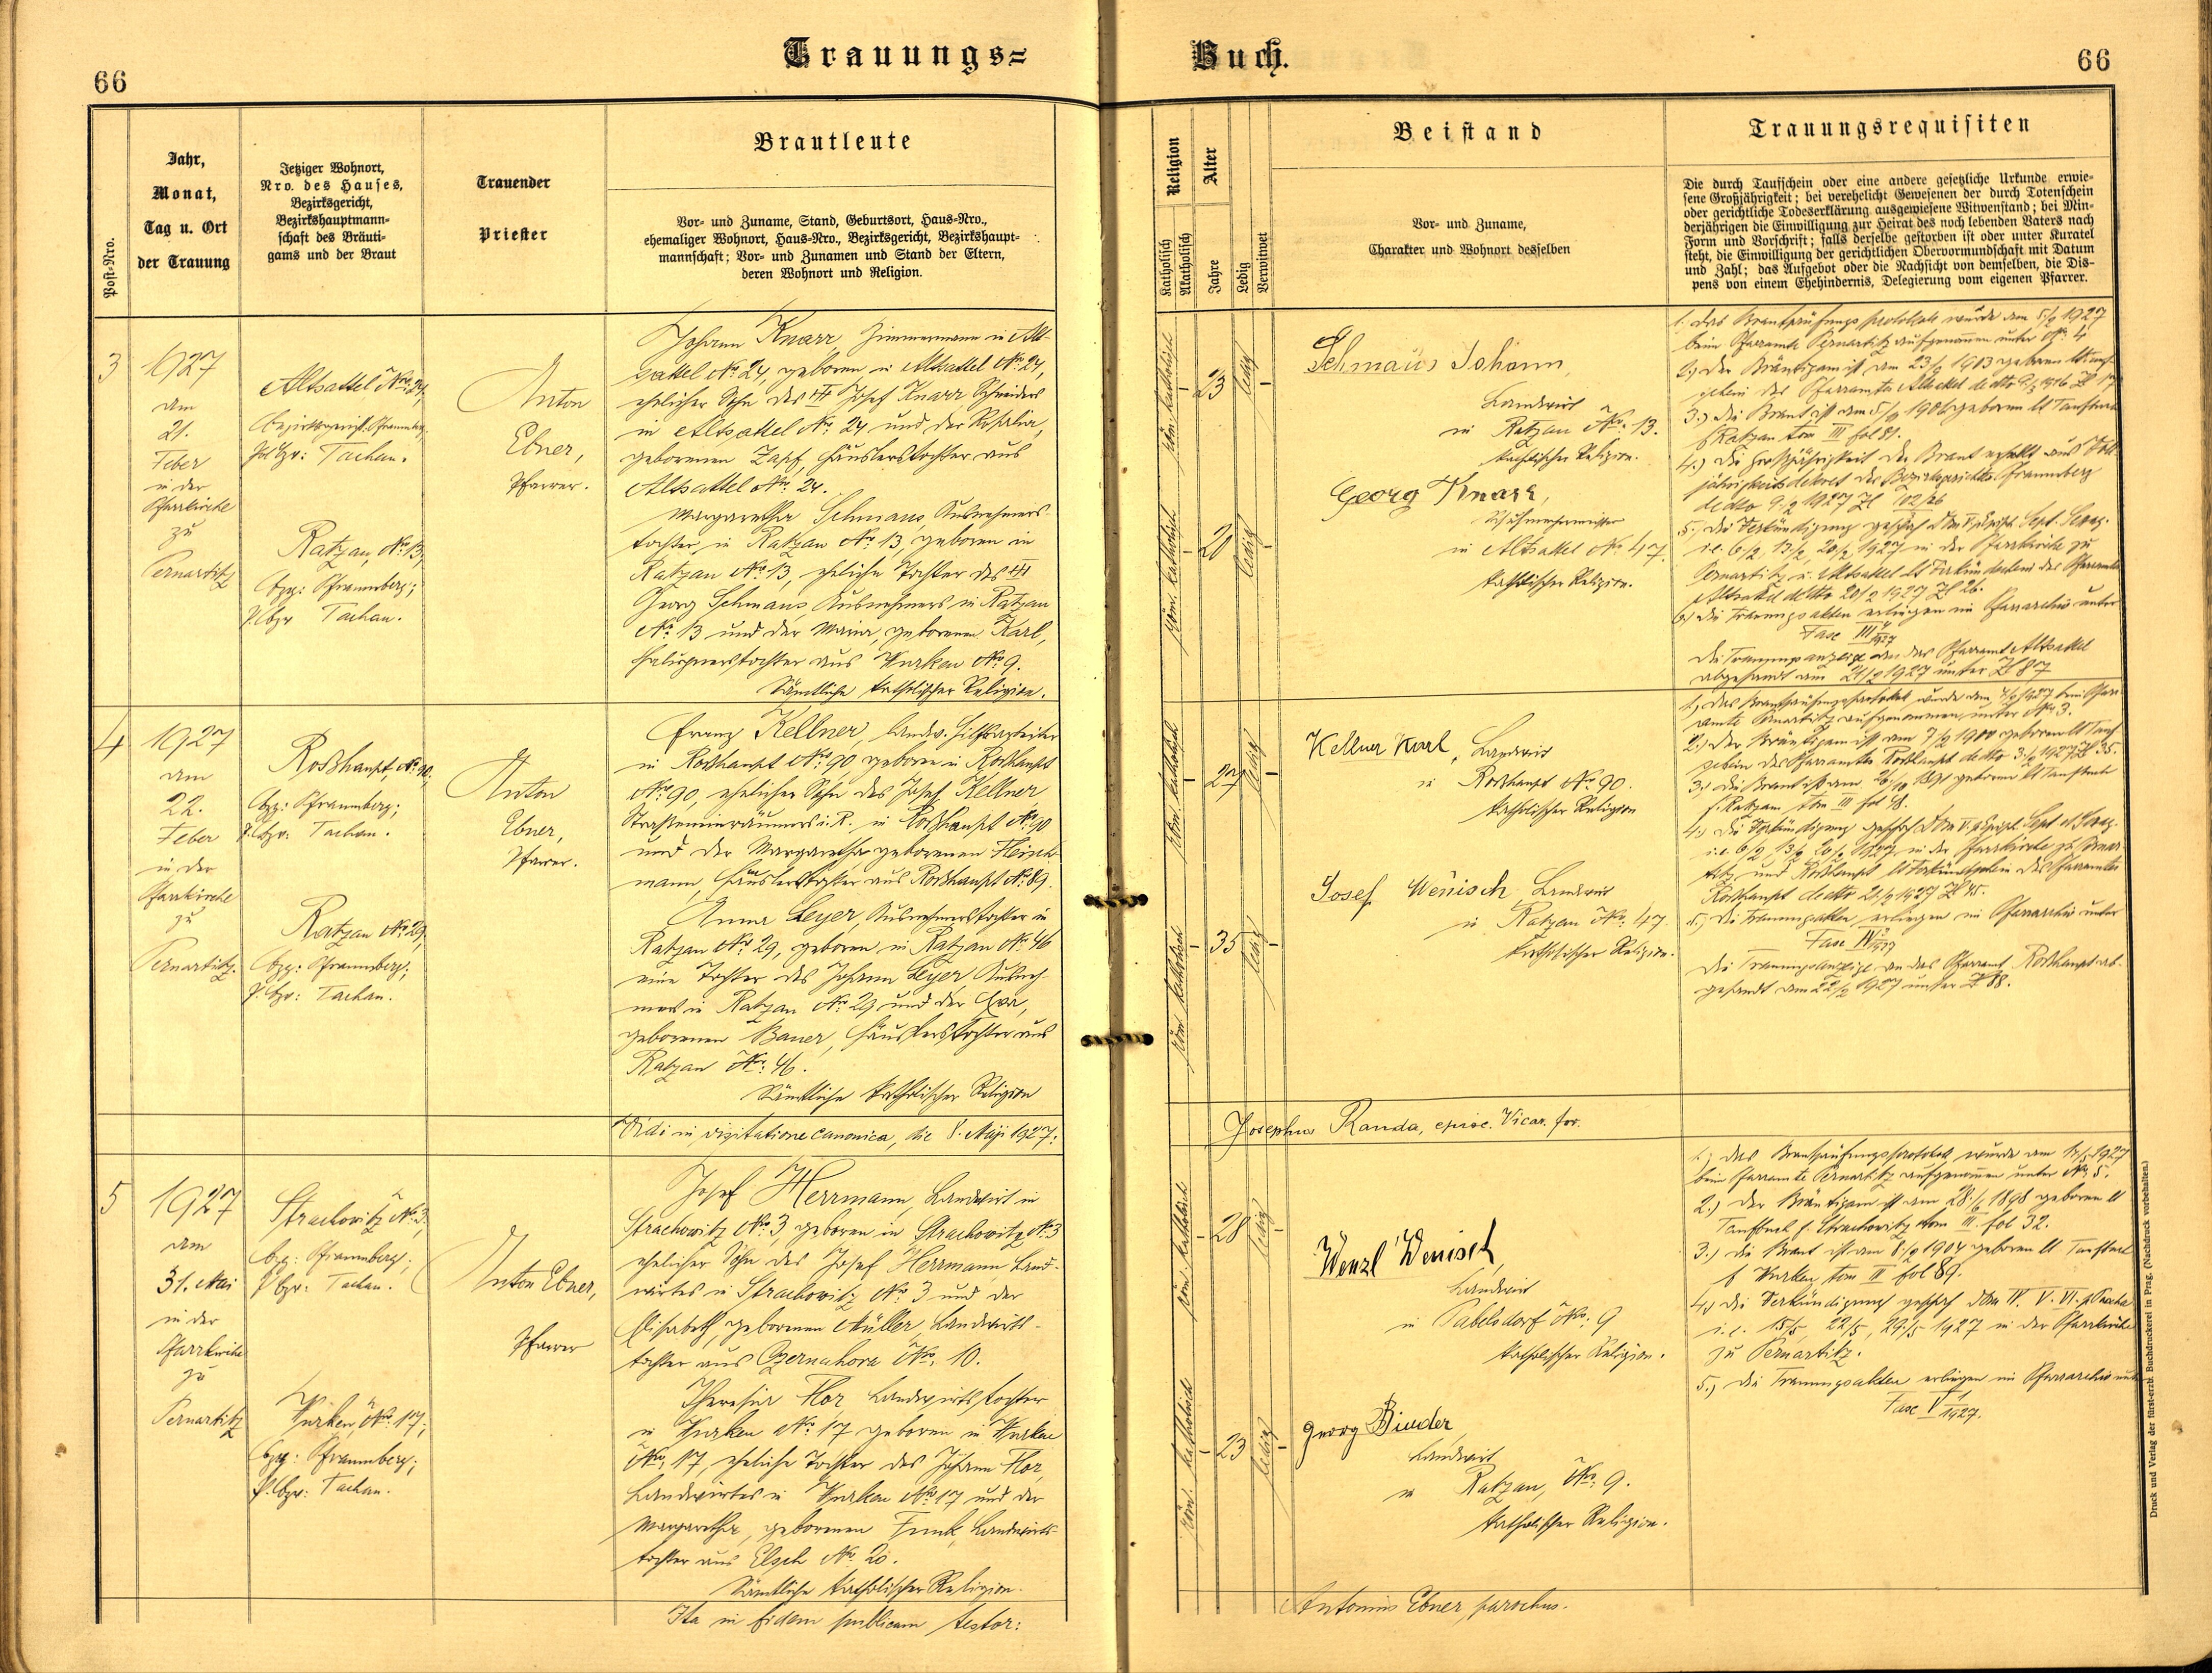 Trauungs=
Buch.
66
66
Post-Nro.
Jahr,
Monat,
Tag u. Ort
der Trauung
Jetziger Wohnort,
Nro. des Hauses,
Bezirksgericht,
Bezirkshauptmann-
schaft des Bräuti-
gams und der Braut
Trauender
Priester
Brautleute
Vor- und Zuname, Stand, Geburtsort, Haus-Nro.,
ehemaliger Wohnort, Haus-Nro., Bezirksgericht, Bezirkshaupt-
mannschaft; Vor- und Zunamen und Stand der Eltern,
deren Wohnort und Religion.
Religion
Katholisch
Akatholisch
Alter
Jahre
Ledig
Verwitwet
Beistand
Vor- und Zuname,
Charakter und Wohnort desselben
Trauungsrequisiten
Die durch Taufschein oder eine andere gesetzliche Urkunde erwie-
sene Großjährigkeit; bei verehelicht Gewesenen der durch Totenschein
oder gerichtliche Todeserklärung ausgewiesene Witwenstand; bei Min-
derjährigen die Einwilligung zur Heirat des noch lebenden Vaters nach
Form und Vorschrift; falls derselbe gestorben ist oder unter Kuratel
steht, die Einwilligung der gerichtlichen Obervormundschaft mit Datum
und Zahl; das Aufgebot oder die Nachsicht von demselben, die Dis-
pens von einem Ehehindernis, Delegierung vom eigenen Pfarrer.
3
1927
am
21.
Feber
in der
Pfarrkirche
zu
Pernartitz
Altsattel No. 24,
Bezirksgericht: Pfraumberg,
Pol. bzv: Tachau.
Ratzau, No. 13,
bzg: Pfraumberg;
P. bzv Tachau.
Anton
Ebner,
Pfarrer.
Johann Knarr, Zimmermann in Alt-
sattel No. 24, geboren in Altsattel No. 24,
ehelicher Sohn des ††† Josef Knarr, Schneiders
in Altsattel No. 24 und der Rosalia,
geborenen Zapf, Häuslerstochter aus
Altsattel No. 24.
Margaretha Schmaus, Ausnehmers-
tochter in Ratzau No. 13, geboren in
Ratzau No. 13, eheliche Tochter des †††
Georg Schmaus, Ausnehmers in Ratzau
No. 13 und der Maria, geborenen Karl,
aus Wurken No. 9.
Sämtliche katholischer Religion.
röm. katholisch
23
ledig
röm. katholisch
20
ledig
Schmaus Johann,
Landwirt
in Ratzau No. 13.
katholischer Religion.
Georg Knarr,
Schuhmachermeister
in Altsattel No. 47.
katholischer Religion.
1. Das Brautprüfungsprotokoll wurde am 5/2 1927
beim Pfarramte Pernartitz aufgenommen unter No. 4
2.) Der Bräutigam ist am 23/ 1903 geboren
3.) Die Braut ist am 5/ 1906 geboren lt Taufbuch
f Ratzau tom III fol 81.
4.) Die Großjährigkeit der Braut erhellt aus Voll-
jährigkeitsdekret des Bezirksgerichts Pfraumberg
dedto 9/2 1927
5. Die Verkündigung geschah
i.e. 6/2, 13/2, 20/2 1927 in der Pfarrkirche zu
Pernartitz u. Altsattel lt Verkündschein des Pfarramtes
Altsattel dedto 20/2 1927 Zl 26.
6.) Die Trauungsakten erliegen im Pfarrarchiv unter
Fasc III 4/1927
Die Trauungsanzeige an das Pfarramt Altsattel
abgesandt am 21/2 1927 unter Zl 87
4
1927
am
22.
Feber
in der
Pfarrkirche
zu
Pernartitz.
Roßhaupt, No. 90,
bzg: Pfraumberg;
P. bzv: Tachau.
Ratzau No. 29,
bzg: Pfraumberg;
P. bzv: Tachau.
Anton
Ebner,
Pfarrer.
Franz Kellner, landw. Hilfsarbeiter
in Roßhaupt No. 90 geboren in Roßhaupt
No. 90, ehelicher Sohn des Josef Kellner
Straßeneinräumers i. R. in Roßhaupt No. 90
und der Margaretha geborenen Heinl-
mann, Häuslerstochter aus Roßhaupt No. 89.
Anna Leyer, Ausnehmerstochter in
Ratzau No. 29, geboren in Ratzau No. 46
eine Tochter des Johann Leyer, Ausneh-
mers in Ratzau No. 29 und der Eva,
geborenen Bauer, Häuslerstochter aus
Ratzau No. 46.
Sämtliche katholischer Religion
röm. katholisch
27
ledig
röm. katholisch
35
ledig
Kellner Karl, Landwirt
in Roßhaupt No. 90.
katholischer Religion
Josef Wenisch Landwirt
in Ratzau No. 47
katholischer Religion.
1.) Das Brautprüfungsprotokoll wurde am 7/2 1927 beim Pfarr-
amte Pernartitz aufgenommen unter No. 3.
2.) Der Bräutigam ist am 7/2 1900 geboren lt Tauf-
schein des Pfarramtes Roßhaupt dedto 3/2 1927 Zl 35.
3.) Die Braut ist am geboren lt Taufbuch
f. Ratzau tom III fol 48.
4.) Die Verkündigung geschah
i.e. 6/2 13/2 20/2 1927 in der Pfarrkirche zu Pernar-
titz und Roßhaupt lt Verkündschein des Pfarramtes
Roßhaupt dedto 21/2 1927 Zl 45.
5.) Die Trauungsakten erliegen im Pfarrarchiv unter
Fasc IV 3/1927
Die Trauungsanzeige an das Pfarramt Roßhaupt ab-
gesandt am 22/2 1927 unter Zl 88.
Vidi in visitatione canonica, die 8. Maji 1927:
Josephus Randa, episc. Vicar. for.
5
1927
am
31. Mai
in der
Pfarrkirche
zu
Pernartitz
Strachowitz No. 3;
bzg: Pfraumberg;
P bzv: Tachau.
Wurken, No. 17;
bzg: Pfraumberg;
P. bzv: Tachau.
Anton Ebner,
Pfarrer
Josef Herrmann, Landwirt in
Strachowitz No. 3, geboren in Strachowitz No. 3
ehelicher Sohn des Josef Herrmann Land-
wirtes in Strachowitz No. 3 und der
Elisabeth, geborenen Müller, Landwirts-
tochter aus Czernahora No. 10.
Theresia Flor, Landwirtstochter
in Wurken No. 17 geboren in Wurken
No. 17, eheliche Tochter des Johann Flor,
Landwirtes in Wurken No. 17 und der
Margaretha, geborenen Funk, Landwirts-
tochter aus Elsch No. 20.
Sämtliche katholischer Religion.
röm. katholisch
28
ledig
röm. katholisch
23
ledig
Wenzl Wenisch
Landwirt
in Pabelsdorf No. 9
katholischer Religion.
Georg Binder,
Landwirt
in Ratzau, No. 9.
katholischer Religion.
1.) Das Brautprüfungsprotokoll wurde am 1927
beim Pfarramte Pernartitz aufgenommen unter No. 5.
2.) Der Bräutigam ist am 28/6 1898 geboren lt
Taufbuch f. Strachowitz tom III. fol 32.
3.) Die Braut ist am 8/2 1904 geboren lt Taufbuch
f Wurken tom II fol 89.
4.) Die Verkündigung geschah Dom IV. V. VI. p Pascha
i.e. 15/5, 22/5, 29/5 1927 in der Pfarrkirche
zu Pernartitz.
5.) Die Trauungsakten erliegen im Pfarrarchiv unter
Fasc V 1/1927.
Ita in fidem publicam testor:
Antonius Ebner, parochus.
Druck und Verlag der fürst-erzb. Buchdruckerei in Prag. (Nachdruck vorbehalten.)